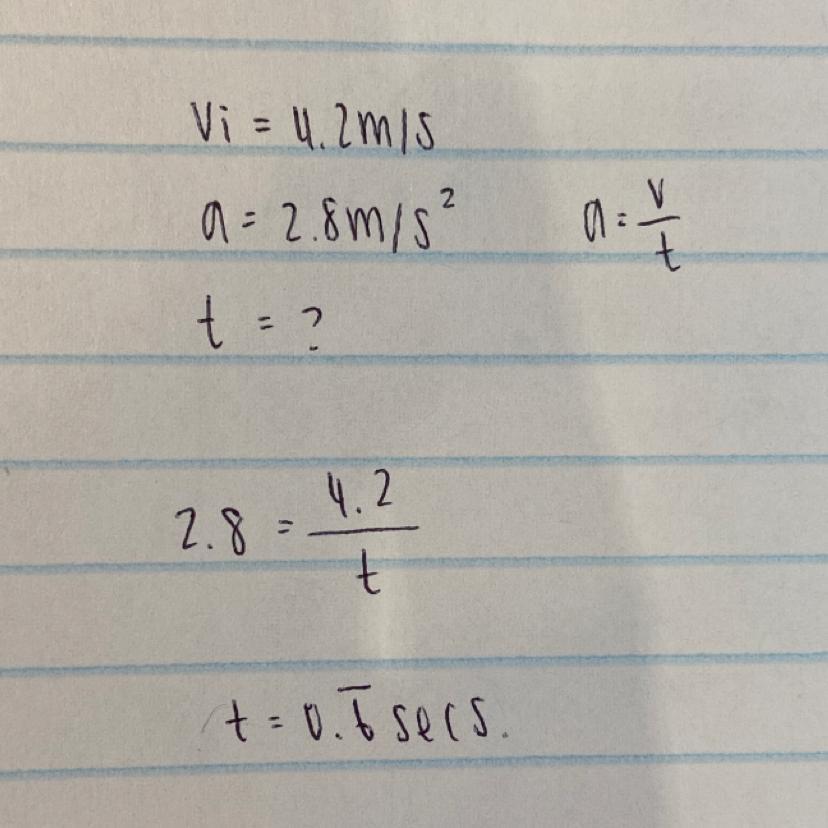 Vi = 4.2m/s
a = 2.8m/s²
a = v/t
t = ?
2.8 = 4.2/t
t = 0.6̅ secs.